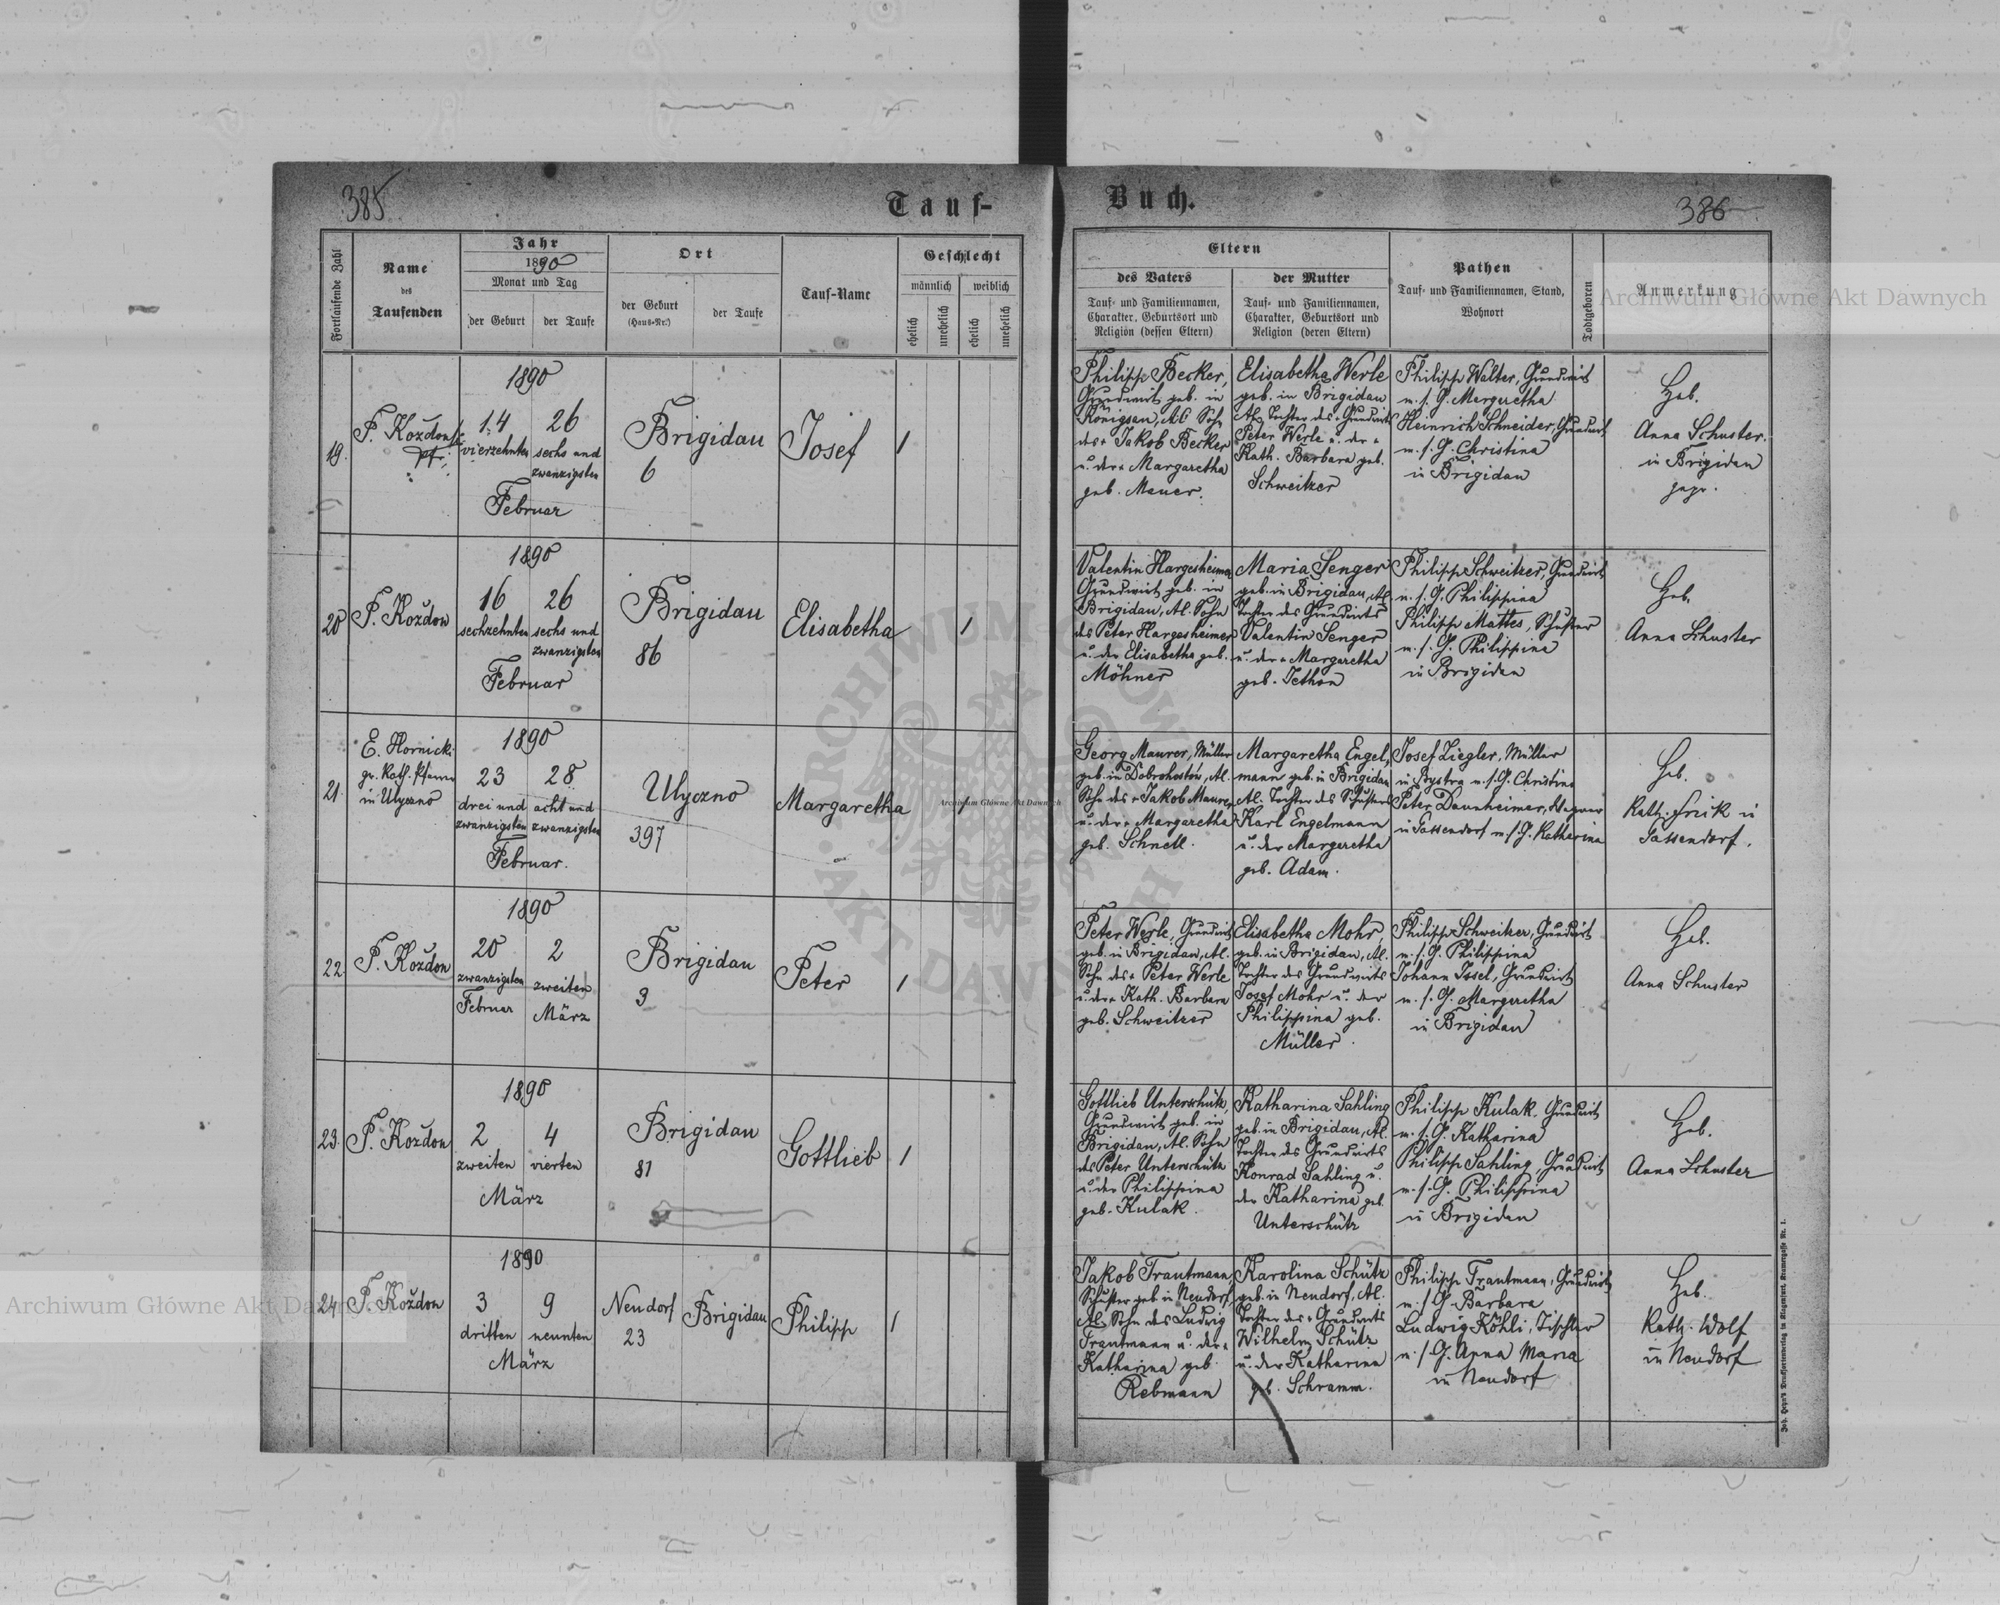 385
Tauf-
Buch.
386
Fortlaufende Zahl
Name
des
Taufenden
Jahr
1890
Monat und Tag
der Geburt
der Taufe
Ort
der Geburt
(Haus-Nr.)
der Taufe
Tauf-Name
Geschlecht
männlich
weiblich
ehelich
unehelich
ehelich
unehelich
Eltern
des Vaters
Tauf- und Familiennamen,
Charakter, Geburtsort und
Religion (dessen Eltern)
der Mutter
Tauf- und Familiennamen,
Charakter, Geburtsort und
Religion (deren Eltern)
Pathen
Tauf- und Familiennamen, Stand,
Wohnort
Todtgeboren
Anmerkung
19.
F. Koždon
1890
14
vierzehnten
26
sechs und
zwanzigsten
Februar
Brigidau
6
Josef
1
Philipp Becker,
Grundwirt geb. in
Königsau, AC Sohn
des + Jakob Becker
u. der + Margaretha
geb. Mauer.
Elisabetha Werle
geb. in Brigidau
Al. Tochter des + Grundwirts
Peter Werle u. der +
Kath. Barbara geb.
Schweitzer
Philipp Walter, Grundwirt
m. s. G. Margaretha
Heinrich Schneider, Grundwirt
m. s. G. Christina
in Brigidau
Heb.
Anna Schuster.
in Brigidau
gepr.
20
F. Koždon
1890
16
sechzehnten
26
sechs und
zwanzigsten
Februar
Brigidau
86
Elisabetha
1
Valentin Hargesheimer
Grundwirt geb. in
Brigidau, Al. Sohn
des Peter Hargesheimer
u. der Elisabetha geb.
Möhner
Maria Senger
geb. in Brigidau, Al.
Tochter des Grundwirts
Valentin Senger
u. der + Margaretha
geb. Jethon
Philipp Schweitzer, Grundwirt
m. s. G. Philippina
Philipp Mattes, Schuster
m. s. G. Philippina
in Brigidau
Heb.
Anna Schuster
21.
E. Hornicki
gr. Kath. Pfarrer
in Ulyczno
1890
23
drei und
zwanzigsten
28
acht und
zwanzigsten
Februar.
Ulyczno
397
Margaretha
1
Georg Maurer, Müller
geb. in Dobrohostów, Al.
Sohn des + Jakob Maurer
u. der + Margaretha
geb. Schnell.
Margaretha Engel-
mann geb. in Brigidau
Al. Tochter des Schusters
Karl Engelmann
u. der Margaretha
geb. Adam.
Josef Ziegler, Müller
in Bystra m. s. G. Christina
Peter Dannheimer, Wagner
in Gassendorf m. s. G. Katharina
Heb.
Kath. Frick in
Gassendorf.
22.
F. Koždon
1890
20
zwanzigsten
Februar
2
zweiten
März
Brigidau
3
Peter
1
Peter Werle, Grundwirt
geb. in Brigidau, Al.
Sohn des + Peter Werle
u. der + Kath. Barbara
geb. Schweitzer
Elisabetha Mohr,
geb. in Brigidau, Al.
Tochter des Grundwirts
Josef Mohr u. der
Philippina geb.
Müller.
Philipp Schweitzer, Grundwirt
m. s. G. Philippina
Johann Issel, Grundwirt
m. s. G. Margaretha
in Brigidau
Heb.
Anna Schuster
23.
F. Koždon
1890
2
zweiten
4
vierten
März
Brigidau
81
Gottlieb
1
Gottlieb Unterschütz,
Grundwirt geb. in
Brigidau, Al. Sohn
des Peter Unterschütz
u. der Philippina
geb. Kulak.
Katharina Sahling
geb. in Brigidau, Al.
Tochter des Grundwirts
Konrad Sahling u.
der Katharina geb.
Unterschütz
Philipp Kulak, Grundwirt
m. s. G. Katharina
Philipp Sahling, Grundwirt
m. s. G. Philippina
in Brigidau
Heb.
Anna Schuster
24
F. Koždon
1890
3
dritten
9
neunten
März
Neudorf
23
Brigidau
Philipp
1
Jakob Trautmann,
Schuster geb. in Neudorf,
Al. Sohn des Ludwig
Trautmann u. der +
Katharina geb.
Rebmann
Karolina Schütz
geb. in Neudorf, Al.
Tochter des + Grundwirts
Wilhelm Schütz
u. der Katharina
geb. Schramm.
Philipp Trautmann, Grundwirt
m. s. G. Barbara
Ludwig Köhli, Tischler
m. s. G. Anna Maria
in Neudorf
Heb.
Kath. Wolf
in Neudorf
Archiwum Główne Akt Dawnych
Archiwum Główne Akt Dawnych
Archiwum Główne Akt Dawnych